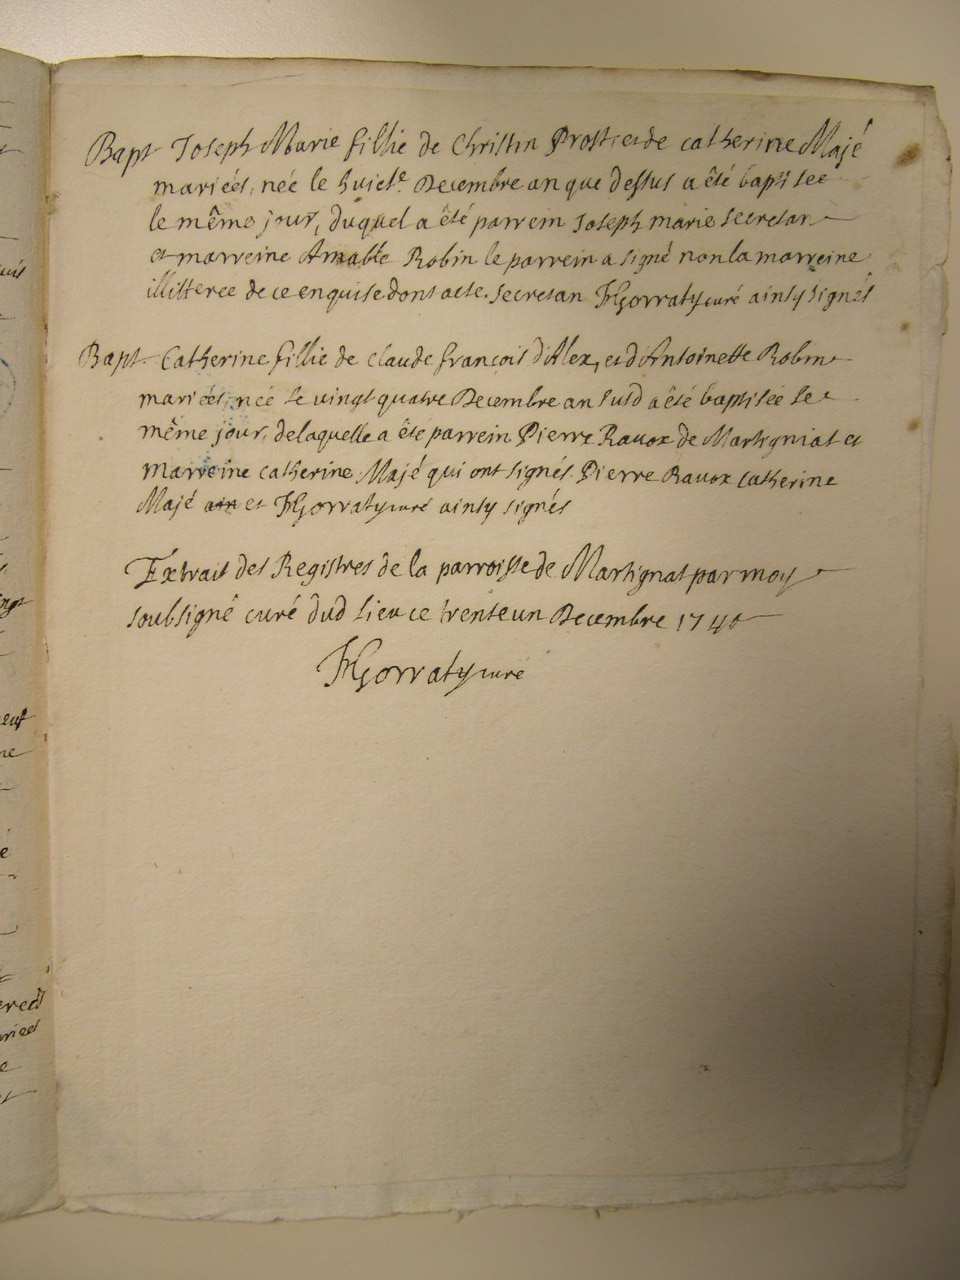 Bapt Joseph Marie fillie de Christin Prost et de catherine Majé
mariés, née le huicte Decembre an que dessus a été baptisee
le même jour, duquel a été parrein Joseph marie secretan
et marreine Amable Robin le parrein a signé non la marreine
illitteree de ce enquise dont acte. secretan JHGorraty curé ainsy signés
Bapt Catherine fillie de claude françois d'Alex, et d'Antoinette Robin
mariés, née le vingt quatre Decembre an susd a été baptisée le
même jour, de laquelle a été parrein Pierre Ravox de Martigniat et
marreine catherine Majé qui ont signés Pierre Ravox catherine
Majé et JHGorraty curé ainsy signés
Extrait des Registres de la parroisse de Martignat par moy
soubsigné curé dud lieu ce trente un Decembre 1740
JHGorraty curé